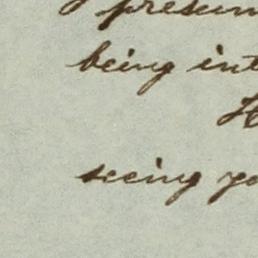 I presum
being int
H
seeing yo